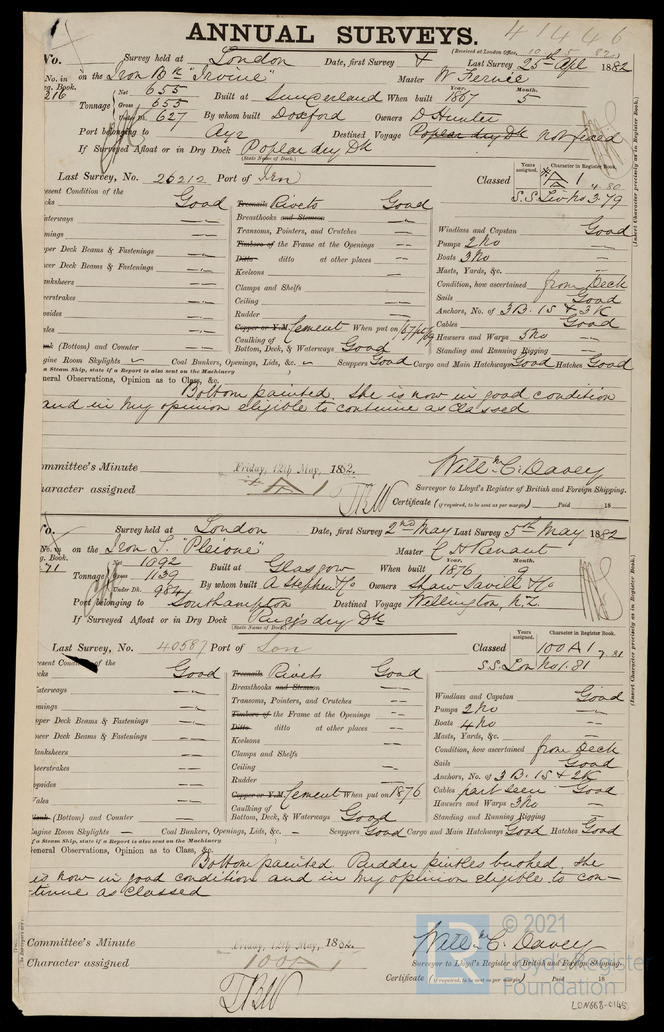 ANNUAL SURVEYS. 41446
(Received at London Office, 10th 5 82)
No. Survey held at London Date, first Survey Last Survey 25th Apl 1882
No. in on the Iron Bk "Irvine" Master W Fernie
g. Book. Net 655 Year. Month.
216 Tonnage Gross 655 Built at Sunderland When built 1867 5
Under Dk. 627 By whom built Doxford Owners D Hunter
Port belonging to Ayr Destined Voyage Poplar dry Dk not fixed
If Surveyed Afloat or in Dry Dock Poplar dry Dk
(State Name of Dock.)
Last Survey, No. 26212 Port of Irn Classed Years assigned. Character in Register Book.
A 1 4.80
S.S. Liv No 3.79
(Insert Character precisely as in Register Book.)
resent Condition of the
cks Good Treenails Rivets Good
aterways — Breasthooks and Stemson — Windlass and Capstan Good
mings — Transoms, Pointers, and Crutches — Pumps 2 No —
pper Deck Beams & Fastenings — Timbers of the Frame at the Openings — Boats 3 No —
wer Deck Beams & Fastenings — Ditto ditto at other places — Masts, Yards, &c. —
anksheers — Keelsons — Condition, how ascertained from Deck
erstrakes — Clamps and Shelfs — Sails Good
opsides — Ceiling — Anchors, No. of 3B. 1S & 3K
ales — Rudder — Cables Good
ank (Bottom) and Counter — Copper or Y.M. Cement When put on
Caulking of Bottom, Deck, & Waterways Good Hawsers and Warps 3 No —
Standing and Running Rigging —
gine Room Skylights — Coal Bunkers, Openings, Lids, &c. — Scuppers Good Cargo and Main Hatchways Good Hatches Good
a Steam Ship, state if a Report is also sent on the Machinery
neral Observations, Opinion as to Class, &c.
Bottom painted. She is now in good condition
and in my opinion eligible to continue as classed
ommittee's Minute Friday, 12th May, 1882.
haracter assigned A 1
Willm C. Davey
Surveyor to Lloyd's Register of British and Foreign Shipping.
Certificate (if required, to be sent as per margin) Paid 18
No. Survey held at London Date, first Survey 2nd May Last Survey 5th May 1882
No. in on the Iron S. "Pleione" Master C H Renaut
g. Book. Net 1092
71 Tonnage Gross 1139 Built at Glasgow When built 1876 9
Under Dk. 984 By whom built A Stephen & Co Owners Shaw Savill & Co
Port belonging to Southampton Destined Voyage Wellington, N.Z.
If Surveyed Afloat or in Dry Dock Rug's dry Dk
(State Name of Dock.)
Last Survey, No. 40587 Port of Lon Classed Years assigned. Character in Register Book.
100A1 7.81
S.S. Lon No 1.81
(Insert Character precisely as in Register Book.)
resent Condition of the
cks Good Treenails Rivets Good
aterways — Breasthooks and Stemson — Windlass and Capstan Good
mings — Transoms, Pointers, and Crutches — Pumps 2 No —
pper Deck Beams & Fastenings — Timbers of the Frame at the Openings — Boats 4 No —
wer Deck Beams & Fastenings — Ditto ditto at other places — Masts, Yards, &c. —
lanksheers — Keelsons — Condition, how ascertained from Deck
heerstrakes — Clamps and Shelfs — Sails Good
opsides — Ceiling — Anchors, No. of 3B. 1S & 2K
Wales — Rudder — Cables part seen Good
Plank (Bottom) and Counter — Copper or Y.M. Cement When put on 1876 Hawsers and Warps 3 No —
Caulking of Bottom, Deck, & Waterways Good Standing and Running Rigging —
Engine Room Skylights — Coal Bunkers, Openings, Lids, &c. — Scuppers Good Cargo and Main Hatchways Good Hatches Good
f a Steam Ship, state if a Report is also sent on the Machinery
General Observations, Opinion as to Class, &c.
Bottom painted. Rudder pintles bushed. She
is now in good condition and in my opinion eligible to con-
tinue as classed
Committee's Minute Friday, 12th May, 1882.
Character assigned 100A1
Willm C. Davey
Surveyor to Lloyd's Register of British and Foreign Shipping.
Certificate (if required, to be sent as per margin) Paid 18
© 2021
Lloyd's Register
Foundation
LON668-0145